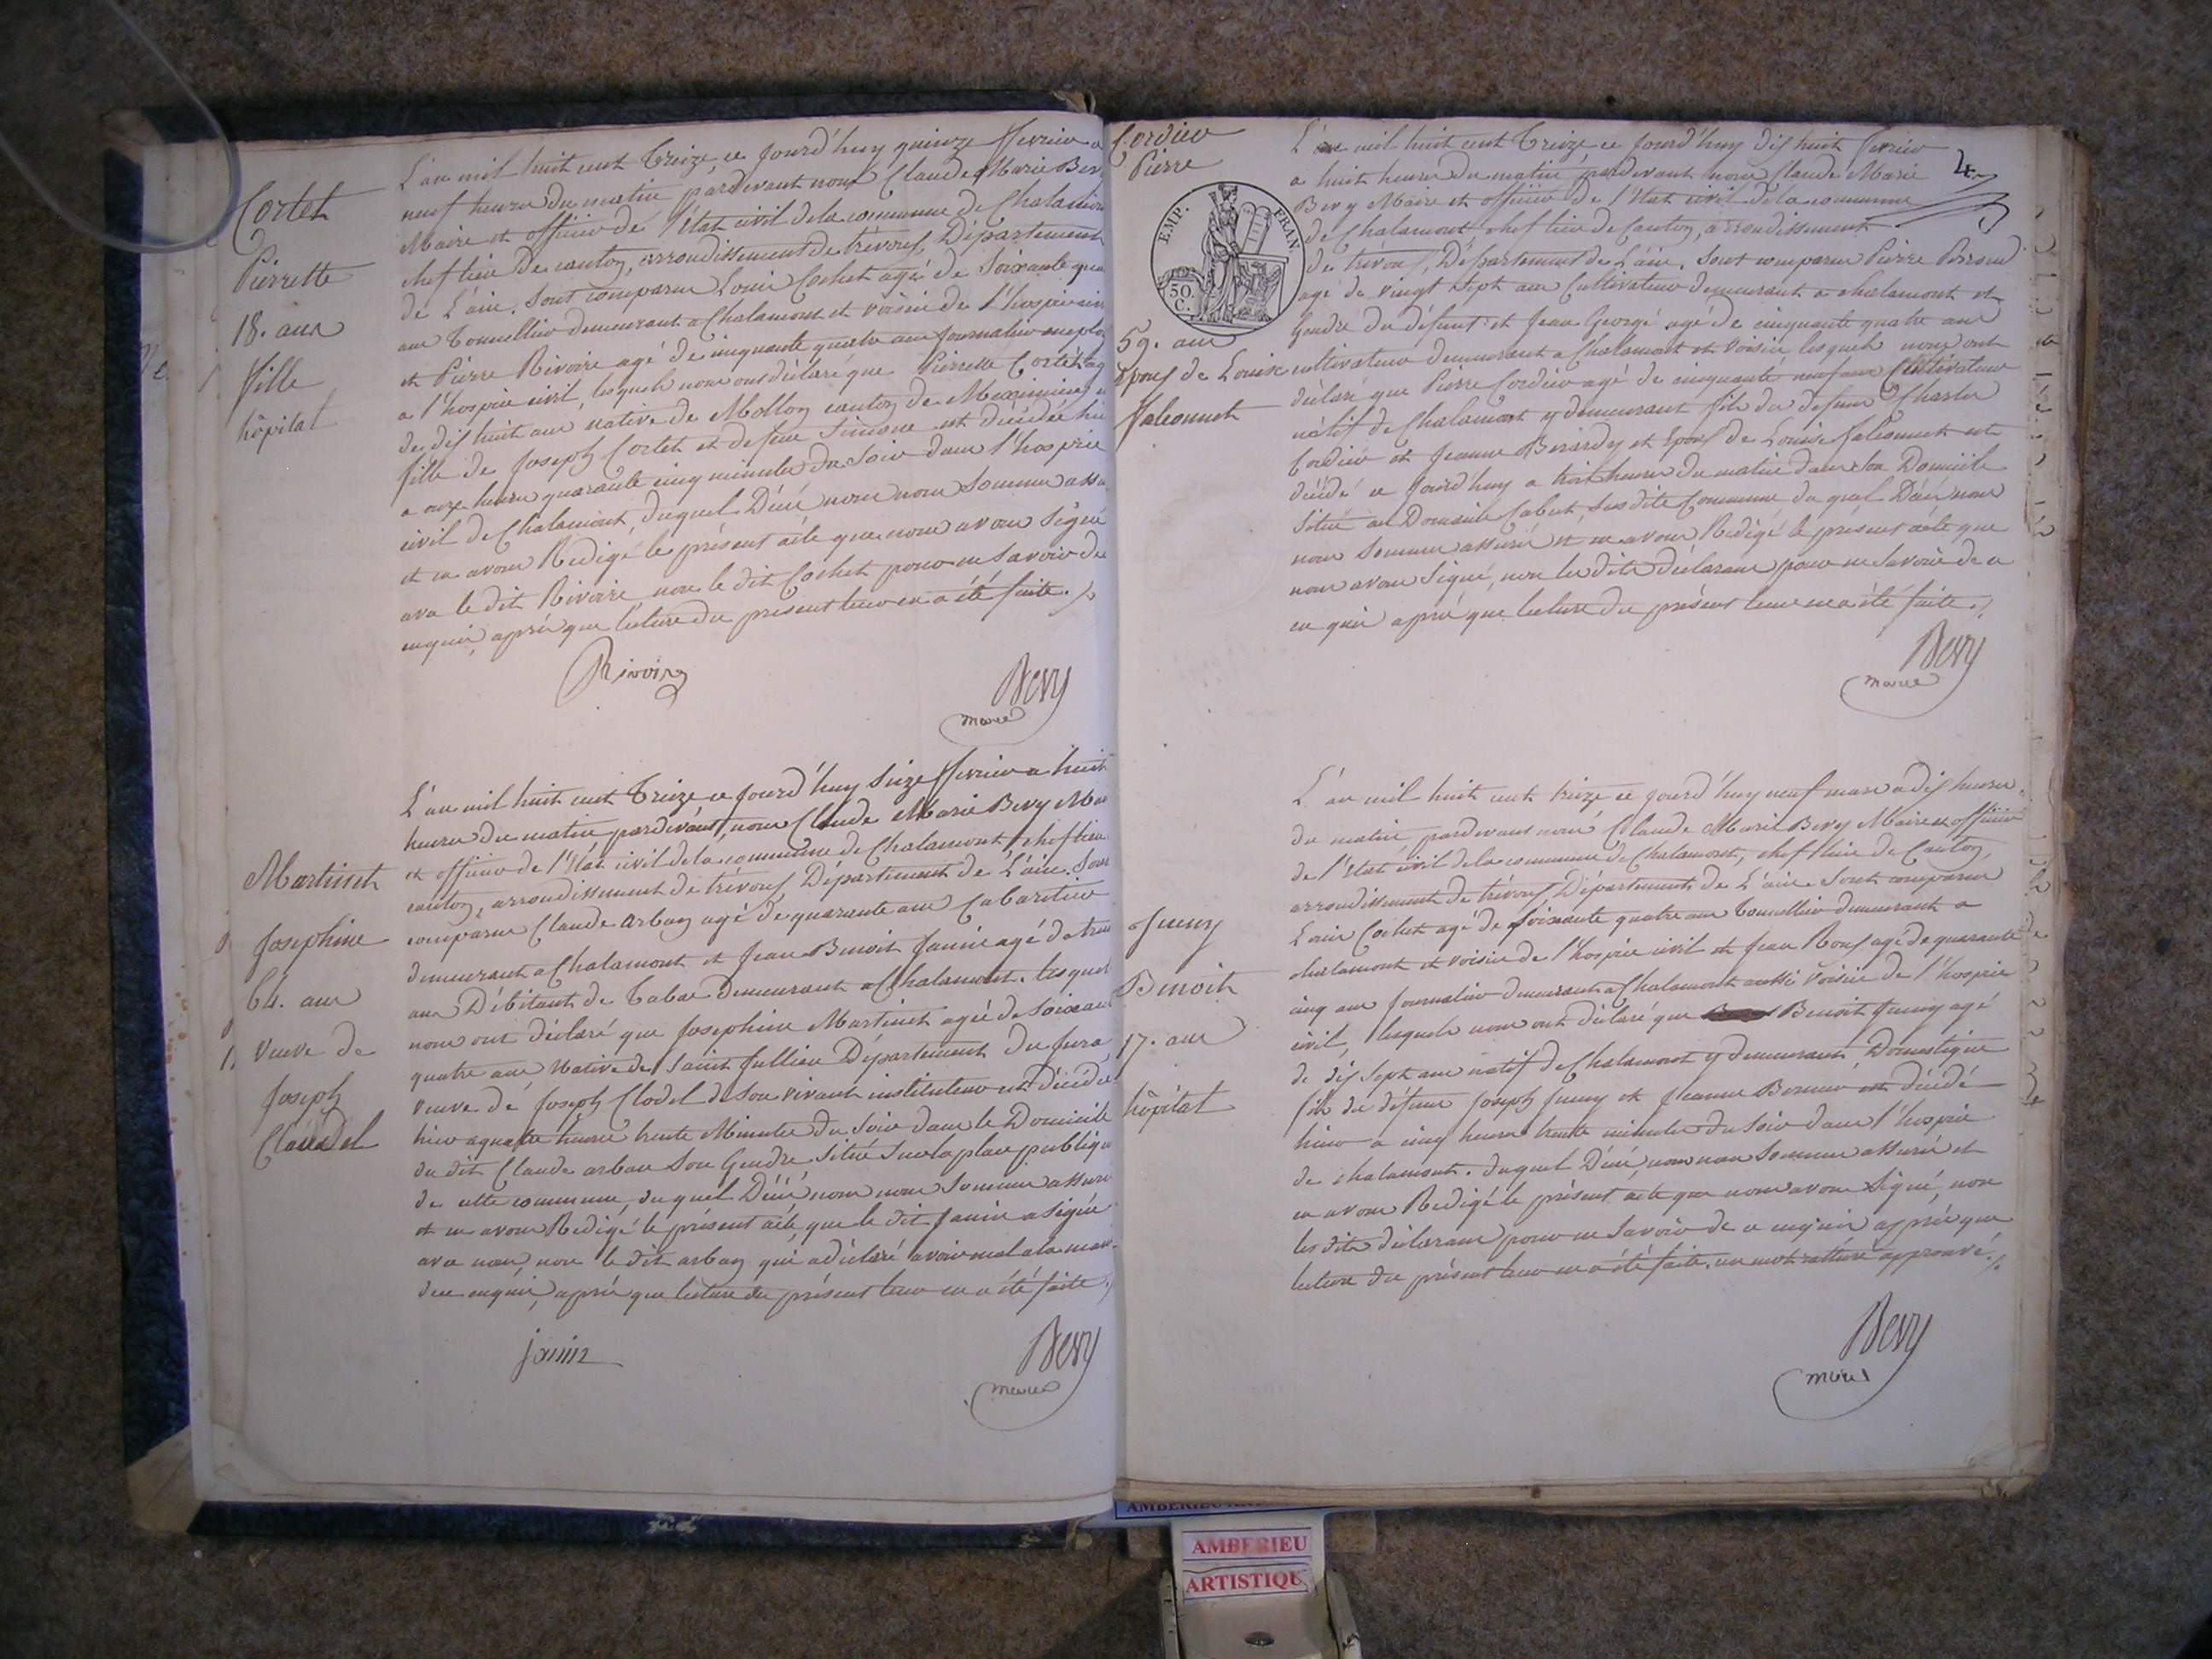 Cortet
Pierrette
18. ans
fille
hôpital
L'an mil huit cent treize, ce jourd'huy quinze fevrier a
neuf heures du matin pardevant nous Claude Marie Bevy
Maire et officier de l'Etat civil de la commune de Chalamont
chef lieu de canton, arrondissement de trévoux, Département
de L'ain. Sont comparus Louis Cochet agé de Soixante qua
ans Tonnellier demeurant a Chalamont et voisin de l'hospice civil
et Pierre Rivoire agé de cinquante quatre ans Journalier employé
a l'hospice civil, lesquels nous ont déclaré que Pierrette Cortet ag
de dis huit ans native de Mollon canton de Meximieux
fille de Joseph Cortet et de feue Simone est décédée hie
a onze heures quarante cinq minutes du Soir dans l'hospice
civil de Chalamont, duquel Décé nous nous Sommes assu
et en avons Redigé le présent acte que nous avons Signé
avec le dit Rivoire non le dit Cochet pour ne Savoir de
enquis, après que lecture du present leur en a été faite.
Rivoire
Bevy
maire
Martinet
Josephine
64. ans
veuve de
Joseph
Claudel
L'an mil huit cent treize ce jourd'huy Seize fevrier a huit
heures du matin pardevant, nous Claude Marie Bevy Mai
et officier de l'Etat civil de la commune de Chalamont chef lieu
canton, arrondissement de trévoux Département de L'ain. Sont
comparus Claude arban agé de quarante ans Cabaretier
demeurant a Chalamont et Jean Benoit Janin agé de tren
ans Débitant de Tabac demeurant a Chalamont. lesquels
nous ont déclaré que Josephine Martinet agée de Soixan
quatre ans Native de Saint Jullien Département du Jura
veuve de Joseph Clodel de Son vivant instituteur est décédée
hier a quatre heures trente Minutes du Soir dans le Domicile
du dit Claude arban Son Gendre Situé Sur la place publique
de cette commune, duquel Décé nous nous Sommes assuré
et en avons Redigé le présent acte, que le dit Janin a Signé
avec nous, non le dit arban qui a déclaré avoir mal a la main
de ce enquis, après que lecture du présent leur en a été faite.
janin
Bevy
maire
Cordier
Pierre
EMP. FRAN.
50
C.
59. ans
Epoux de Louise
falconnet
4
L'an mil huit cent treize ce jourd'huy dis huit fevrier
a huit heures du matin pardevant nous Claude Marie
Bevy Maire et officier de l'Etat civil de la commune
de Chalamont chef lieu de Canton, arrondissement
de trévoux, Département de L'ain. Sont comparus Pierre Perroud
agé de vingt Sept ans Cultivateur demeurant a chalamont et
Gendre du défunt et Jean George agé de cinquante quatre ans
cultivateur demeurant a Chalamont et voisin, lesquels nous ont
déclaré que Pierre Cordier agé de cinquante neuf ans Cultivateur
natif de Chalamont y demeurant fils du defunt Charles
Cordier et Jeanne Berardy et Epoux de Louise falconnet est
décédé ce jourd'huy a trois heures du matin dans Son Domicile
Situé au Domaine Cabut, Sus dite Commune, du quel Décé nous
nous Sommes assurés et en avons Redigé le présent acte que
nous avons Signé, non les dits déclarans pour ne Savoir de ce
en quis après que lecture du présent leur en a été faite.
Bevy
maire
Jeuny
Benoit
17. ans
hôpital
L'an mil huit cent treize ce jourd'huy neuf mars a dis heures
du matin, pardevant nous Claude Marie Bevy Maire et officier
de l'Etat civil de la commune de Chalamont, chef lieu de Canton
arrondissement de trévoux, Département de L'ain. Sont comparus
Louis Cochet agé de Soixante quatre ans Tonnellier demeurant a
chalamont et voisin de l'hospice civil et Jean Roux agé de quarante
cinq ans Journalier demeurant a Chalamont aussi voisin de l'hospice
civil, lesquels nous ont déclaré que Benoit Jeuny agé
de dis Sept ans natif de Chalamont y demeurant Domestique
fils du défunt Joseph Jeuny et Jeanne Bernier est décédé
hier a cinq heures trente minutes du Soir dans l'hospice
de chalamont. duquel Décé, nous nous Sommes assurés et
en avons Redigé le présent acte que nous avons Signé, non
les dits déclarans pour ne Savoir de ce enquis après que
lecture du présent leur en a été faite. un mot rature approuvé.
Bevy
maire
AMBERIEU
AMBERIEU
ARTISTIQUE